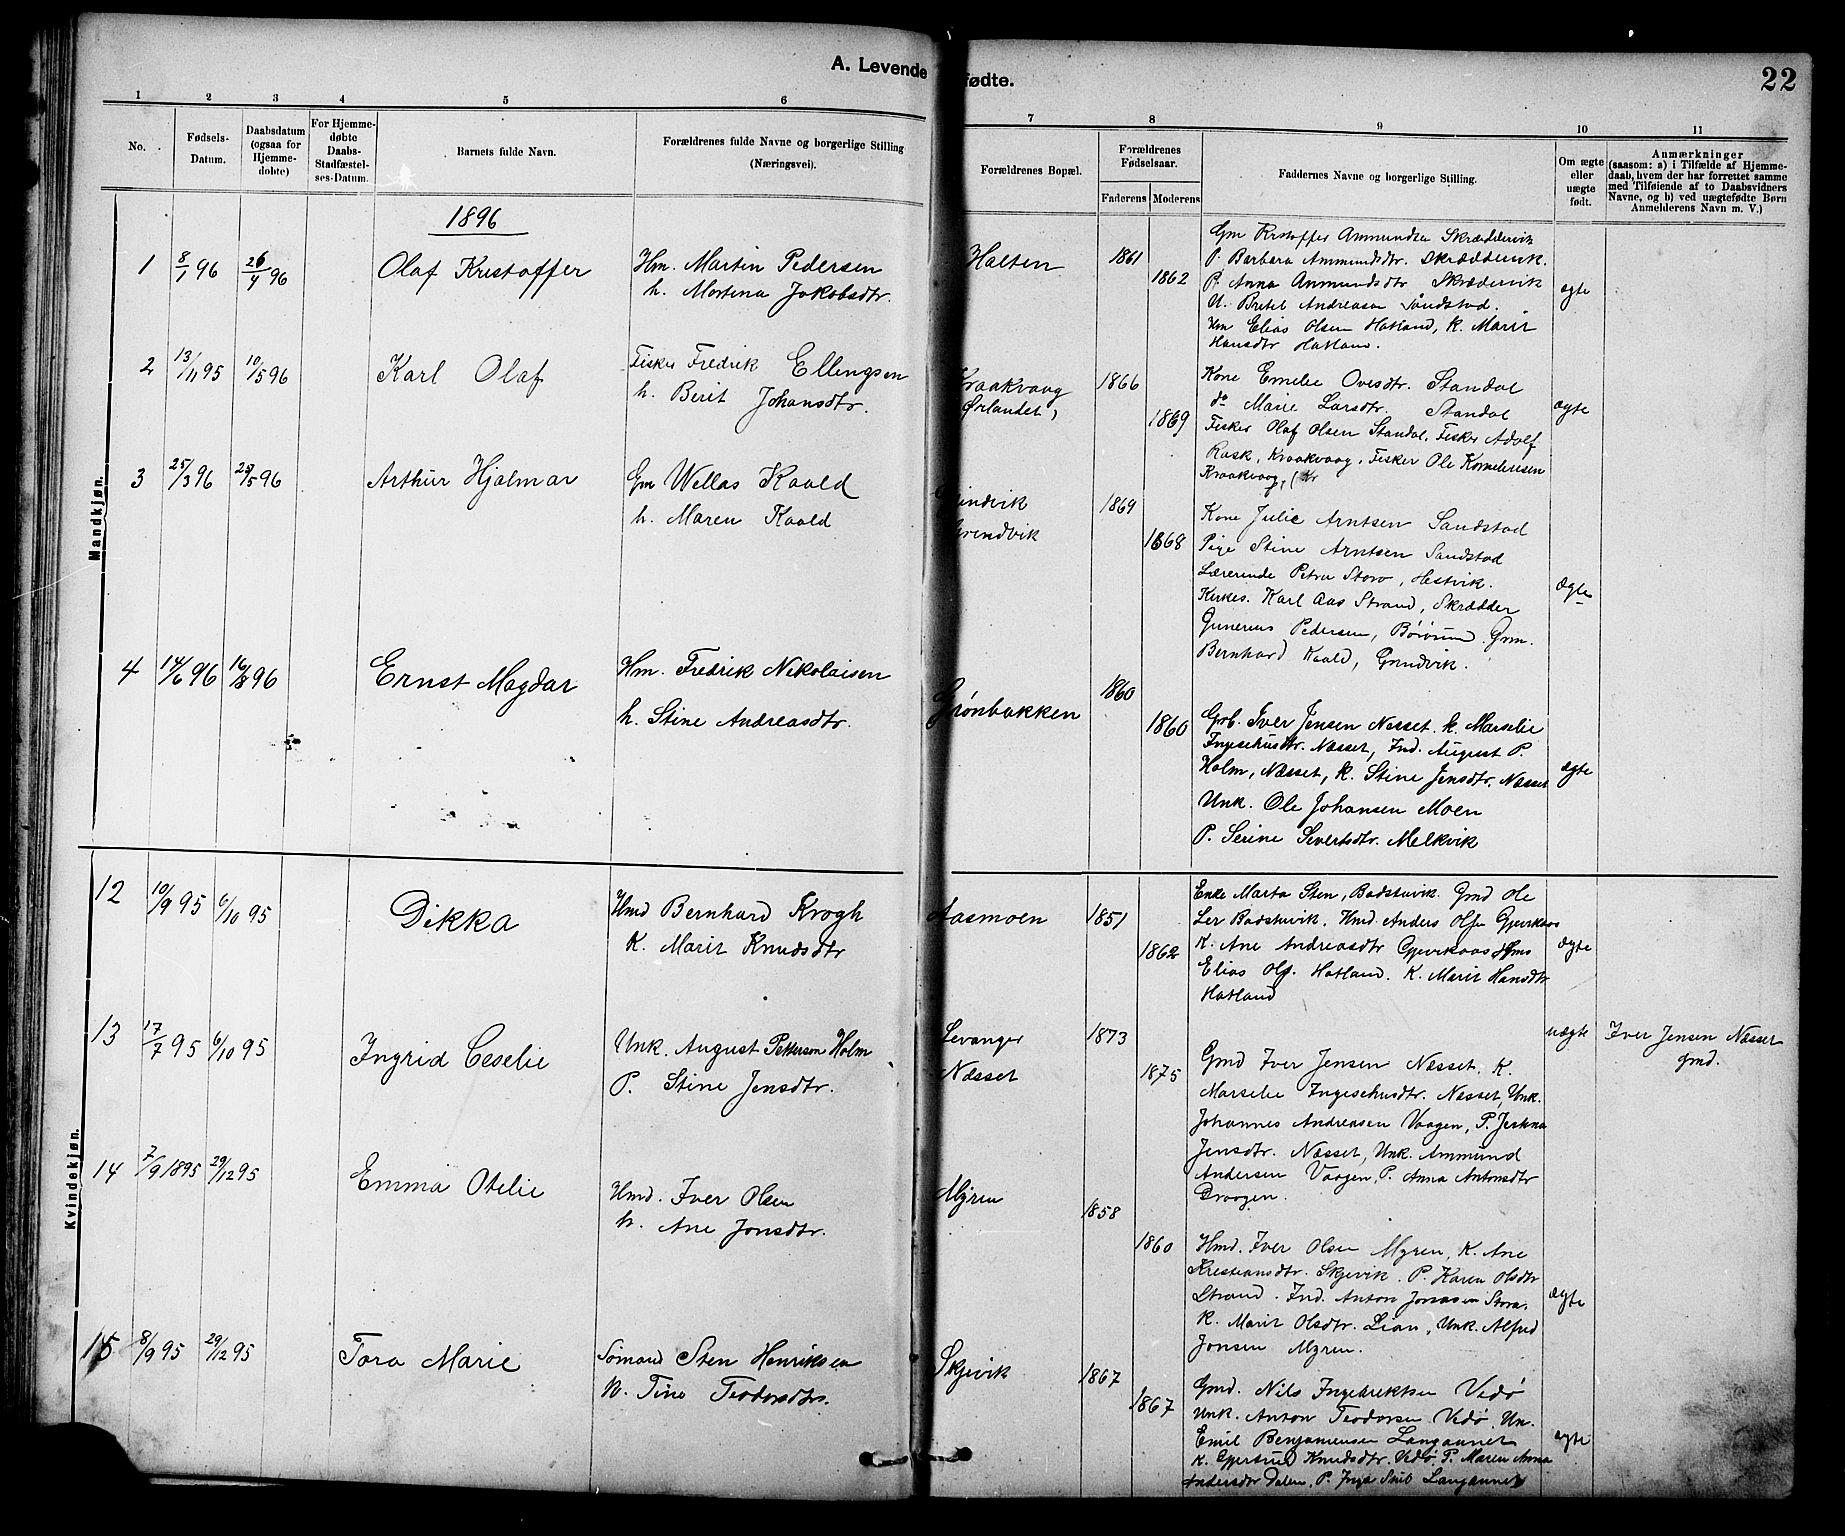 A. Levende fødte.
22
1 2 3 4 5 6 7 8 9 10 11
No.
Fødsels-
Datum.
Daabsdatum
(ogsaa for
Hjemme-
døbte)
For Hjemme-
døbte
Daabs-
Stadfæstel-
ses-Datum.
Barnets fulde Navn.
Forældrenes fulde Navne og borgerlige Stilling
(Næringsvei).
Forældrenes Bopæl.
Forældrenes
Fødselsaar.
Faderens Moderens
Faddernes Navne og borgerlige Stilling.
Om ægte
eller
uægte
født.
Anmærkninger
(saasom: a) i Tilfælde af Hjemme-
daab, hvem der har forrettet samme
med Tilføiende af to Daabsvidners
Navne, og b) ved uægtefødte Børn
Anmelderens Navn m. V.)
Mandkjøn.
1896
1 8/1 96 26/4 96 Olaf Kristoffer
Hm. Martin Pedersen
h. Martina Jakobsdtr.
Halten 1861
1862
Gm Krstoffer Ammundsen Skræddervik
P. Barbara Ammundsdtr. Skræddervik.
P. Anna Ammundsdtr Skrædervik
U. Bretel Andreasen Sandstad.
Hm Elias Olsen Hatland, K. Marit
Hansdtr Hatland.
ægte
2 13/11 95 10/5 96 Karl Olaf
Fisker Fredrik Ellengsen
h. Berit Johansdtr.
Kraakvaag
Ørlandet,
1866
1869
Kone Emelie Ovesdtr. Standal
do Marie Larsdtr. Standal
Fisker Olaf Olsen Standal, Fisker Adolf
Rask, Kraakvaag, Fisker Ole Korneliusen
Kraakvaag,
ægte
3 25/3 96 25/5 96 Arthur Hjalmar
Gm Wellas Kaald
h. Maren Kaald
1869
1868
Kone Julie Arntsen Sandstad
Pige Stine Arntsen Sandstad
Lærerinde Petra Storø, Hestvik.
Kerkes. Karl Aas Strand, Skrædder
Gunerius Pedersen, Børøsund. Gm.
Bernhard Kaald, Grindvik.
Ægte
4 14/6 96 16/8 96 Ernst Magdar
Hm. Fredrik Nikolaisen
h. Stine Andreasdtr.
Grønbakken 1860
1860
Grb. Iver Jensen Næsset. k. Marselie
Ingeborgsdtr. Næsset, Ind. August P.
Holm, Næsset, k. Stine Jensdtr. Næsset
Unk. Ole Johansen Moen
P. Serine Severtsdtr. Melkvik
ægte
Kvindekjøn.
12 10/9 95 6/10 95 Dikka
Hmd Bernhard Krogh
K. Marit Knudsdtr
Aasmoen 1851
1862
Enke Marta Sten, Badstuvik. Gmd Ole
Ler Badstuvik. Hmd. Anders Olsen
K. Ane Andreasdtr
Elias Ols. Hatland. K. Marit Hansdtr
Hatland
ægte
13 17/7 95 6/10 95 Ingrid Ceselie
Unk. August Pettersen Holm
P. Stine Jensdtr.
Levanger
Næsset
1873
1875
Gmd Iver Jensen Næsset. K.
Marselie Næsset, Unk.
Johannes Andreasen Vaagen, P.
Jensdtr. Næsset, Unk. Ammund
Andersen Vaagen, P. Anna Antonsdtr
uægte
Iver Jensen Næsset
gmd.
14 7/9 1895 29/12 95 Emma Otelie
Hmd. Iver Olsen
h. Ane Jonsdtr.
Myren 1858
1860
Hmd. Iver Olsen Myren, K. Ane
Krestiansdtr. Skjevik. P. Karen Olsdtr
Strand. Ind. Anton Jonasen Storø.
K. Marit Olsdtr. Lian, Unk. Alfred
Jonsen Myren.
ægte
15 8/9 95 29/12 95 Tora Marie
Sømand Sten Henriksen
h. Tine Teodorsdtr.
Skjevik 1867
1867
Gmd. Nils Ingebrektsen Vedø
Unk. Anton Teodorsen Vedø. Un.
Emil Benjaminsen Langannet
K. Gjertrud Knudsdtr. Vedø P. Maren Anna
Andersdtr Dalen, P. Langannet
ægte